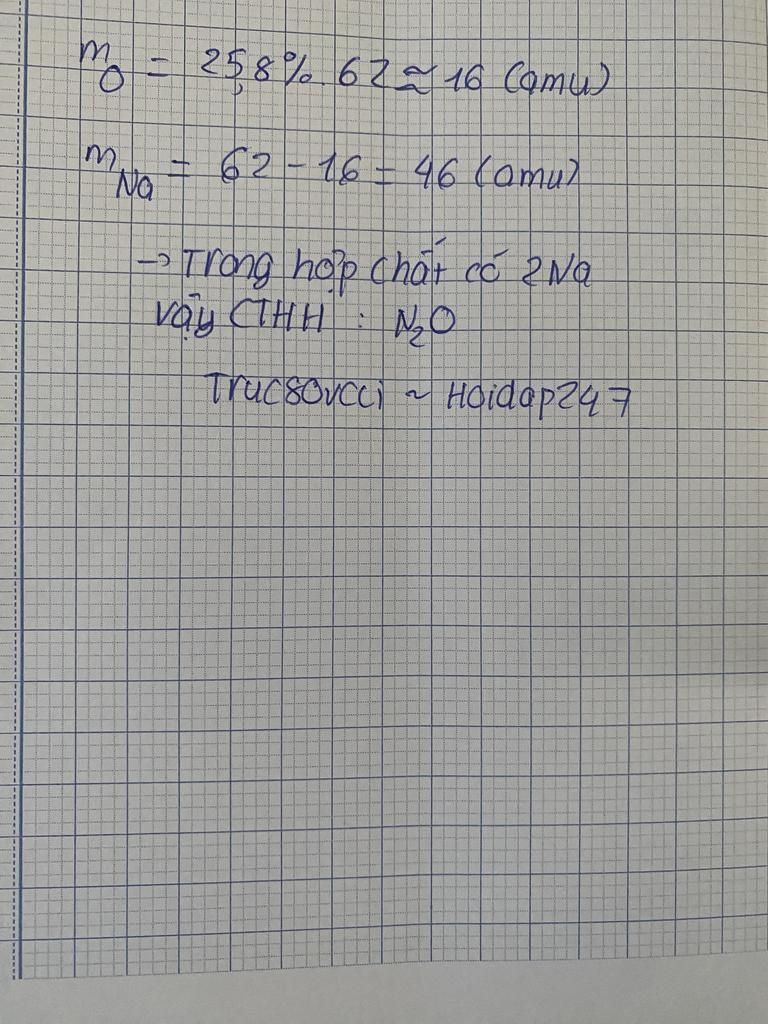 mO = 25,8% . 62 ≈ 16 (amu)
mNa = 62 - 16 = 46 (amu)
→ Trong hợp chất có 2Na
vậy CTHH : N₂O
Truc8ovcci ~ Hoidap247